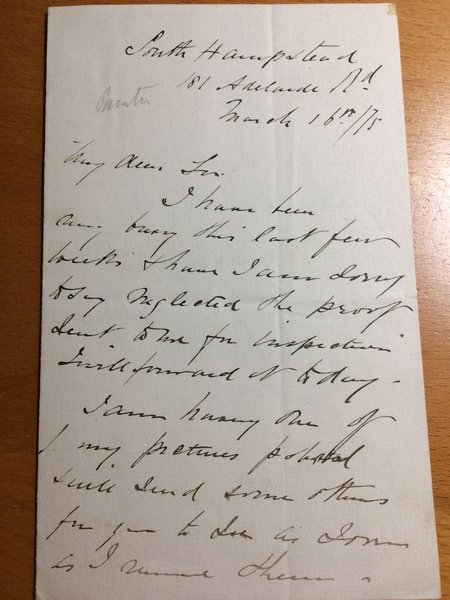 South Hampstead
181 Adelaide Rd
Painter
March 16th/75
My dear Sir
I have been
very busy this last few
weeks & have I am sorry
to say neglected the proof
sent to me for inspection
I will forward it today -
I am having one of
my pictures
I will send some others
for you to see as soon
as I receive them.